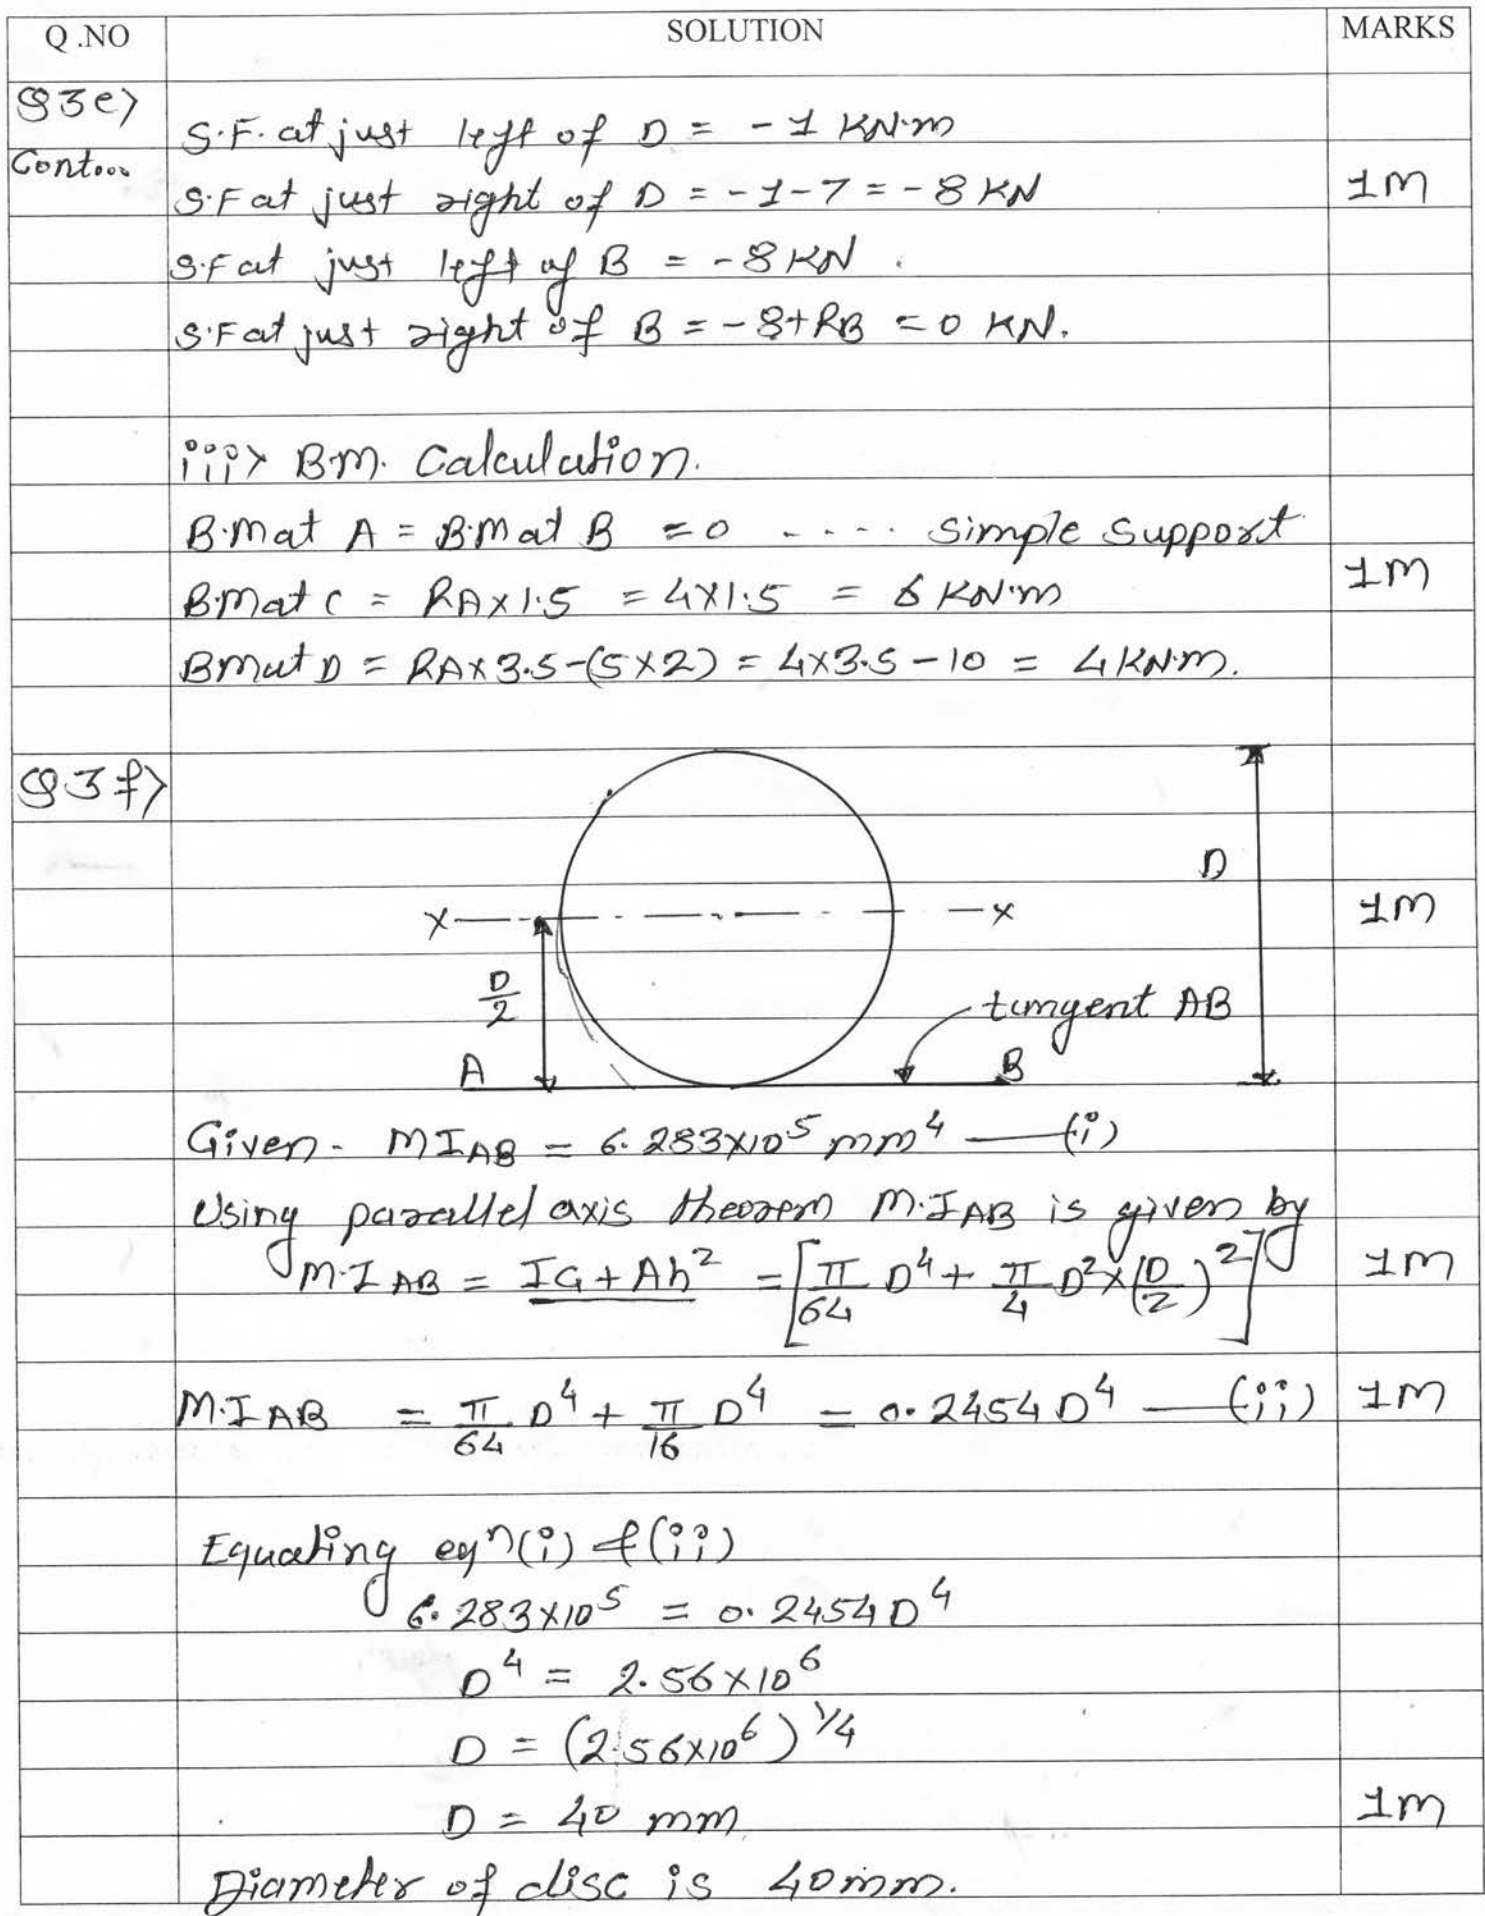 Q.NO SOLUTION MARKS
Q3e)
S.F. at just left of D = -1 KN.m
Cont...
S.F at just right of D = -1-7 = -8 KN 1M
S.F at just left of B = -8 KN .
S.F at just right of B = -8+RB = 0 KN.
iii) B.M. Calculation.
B.M at A = B.M at B = 0 ..... Simple Support
B.M at C = RA×1.5 = 4×1.5 = 6 KN.m 1M
B.M at D = RA×3.5-(5×2) = 4×3.5-10 = 4 KN.m.
Q3f)
D
X X 1M
D/2
tangent AB
A B
Given - MI_AB = 6.283×10^5 mm^4 —(i)
Using parallel axis theorem M.I_AB is given by
M.I_AB = IG + Ah^2 = [π/64 D^4 + π/4 D^2×(D/2)^2] 1M
M.I_AB = π/64 D^4 + π/16 D^4 = 0.2454 D^4 —(ii) 1M
Equating eqn(i) & (ii)
6.283×10^5 = 0.2454 D^4
D^4 = 2.56×10^6
D = (2.56×10^6)^1/4
D = 40 mm 1M
Diameter of disc is 40mm.